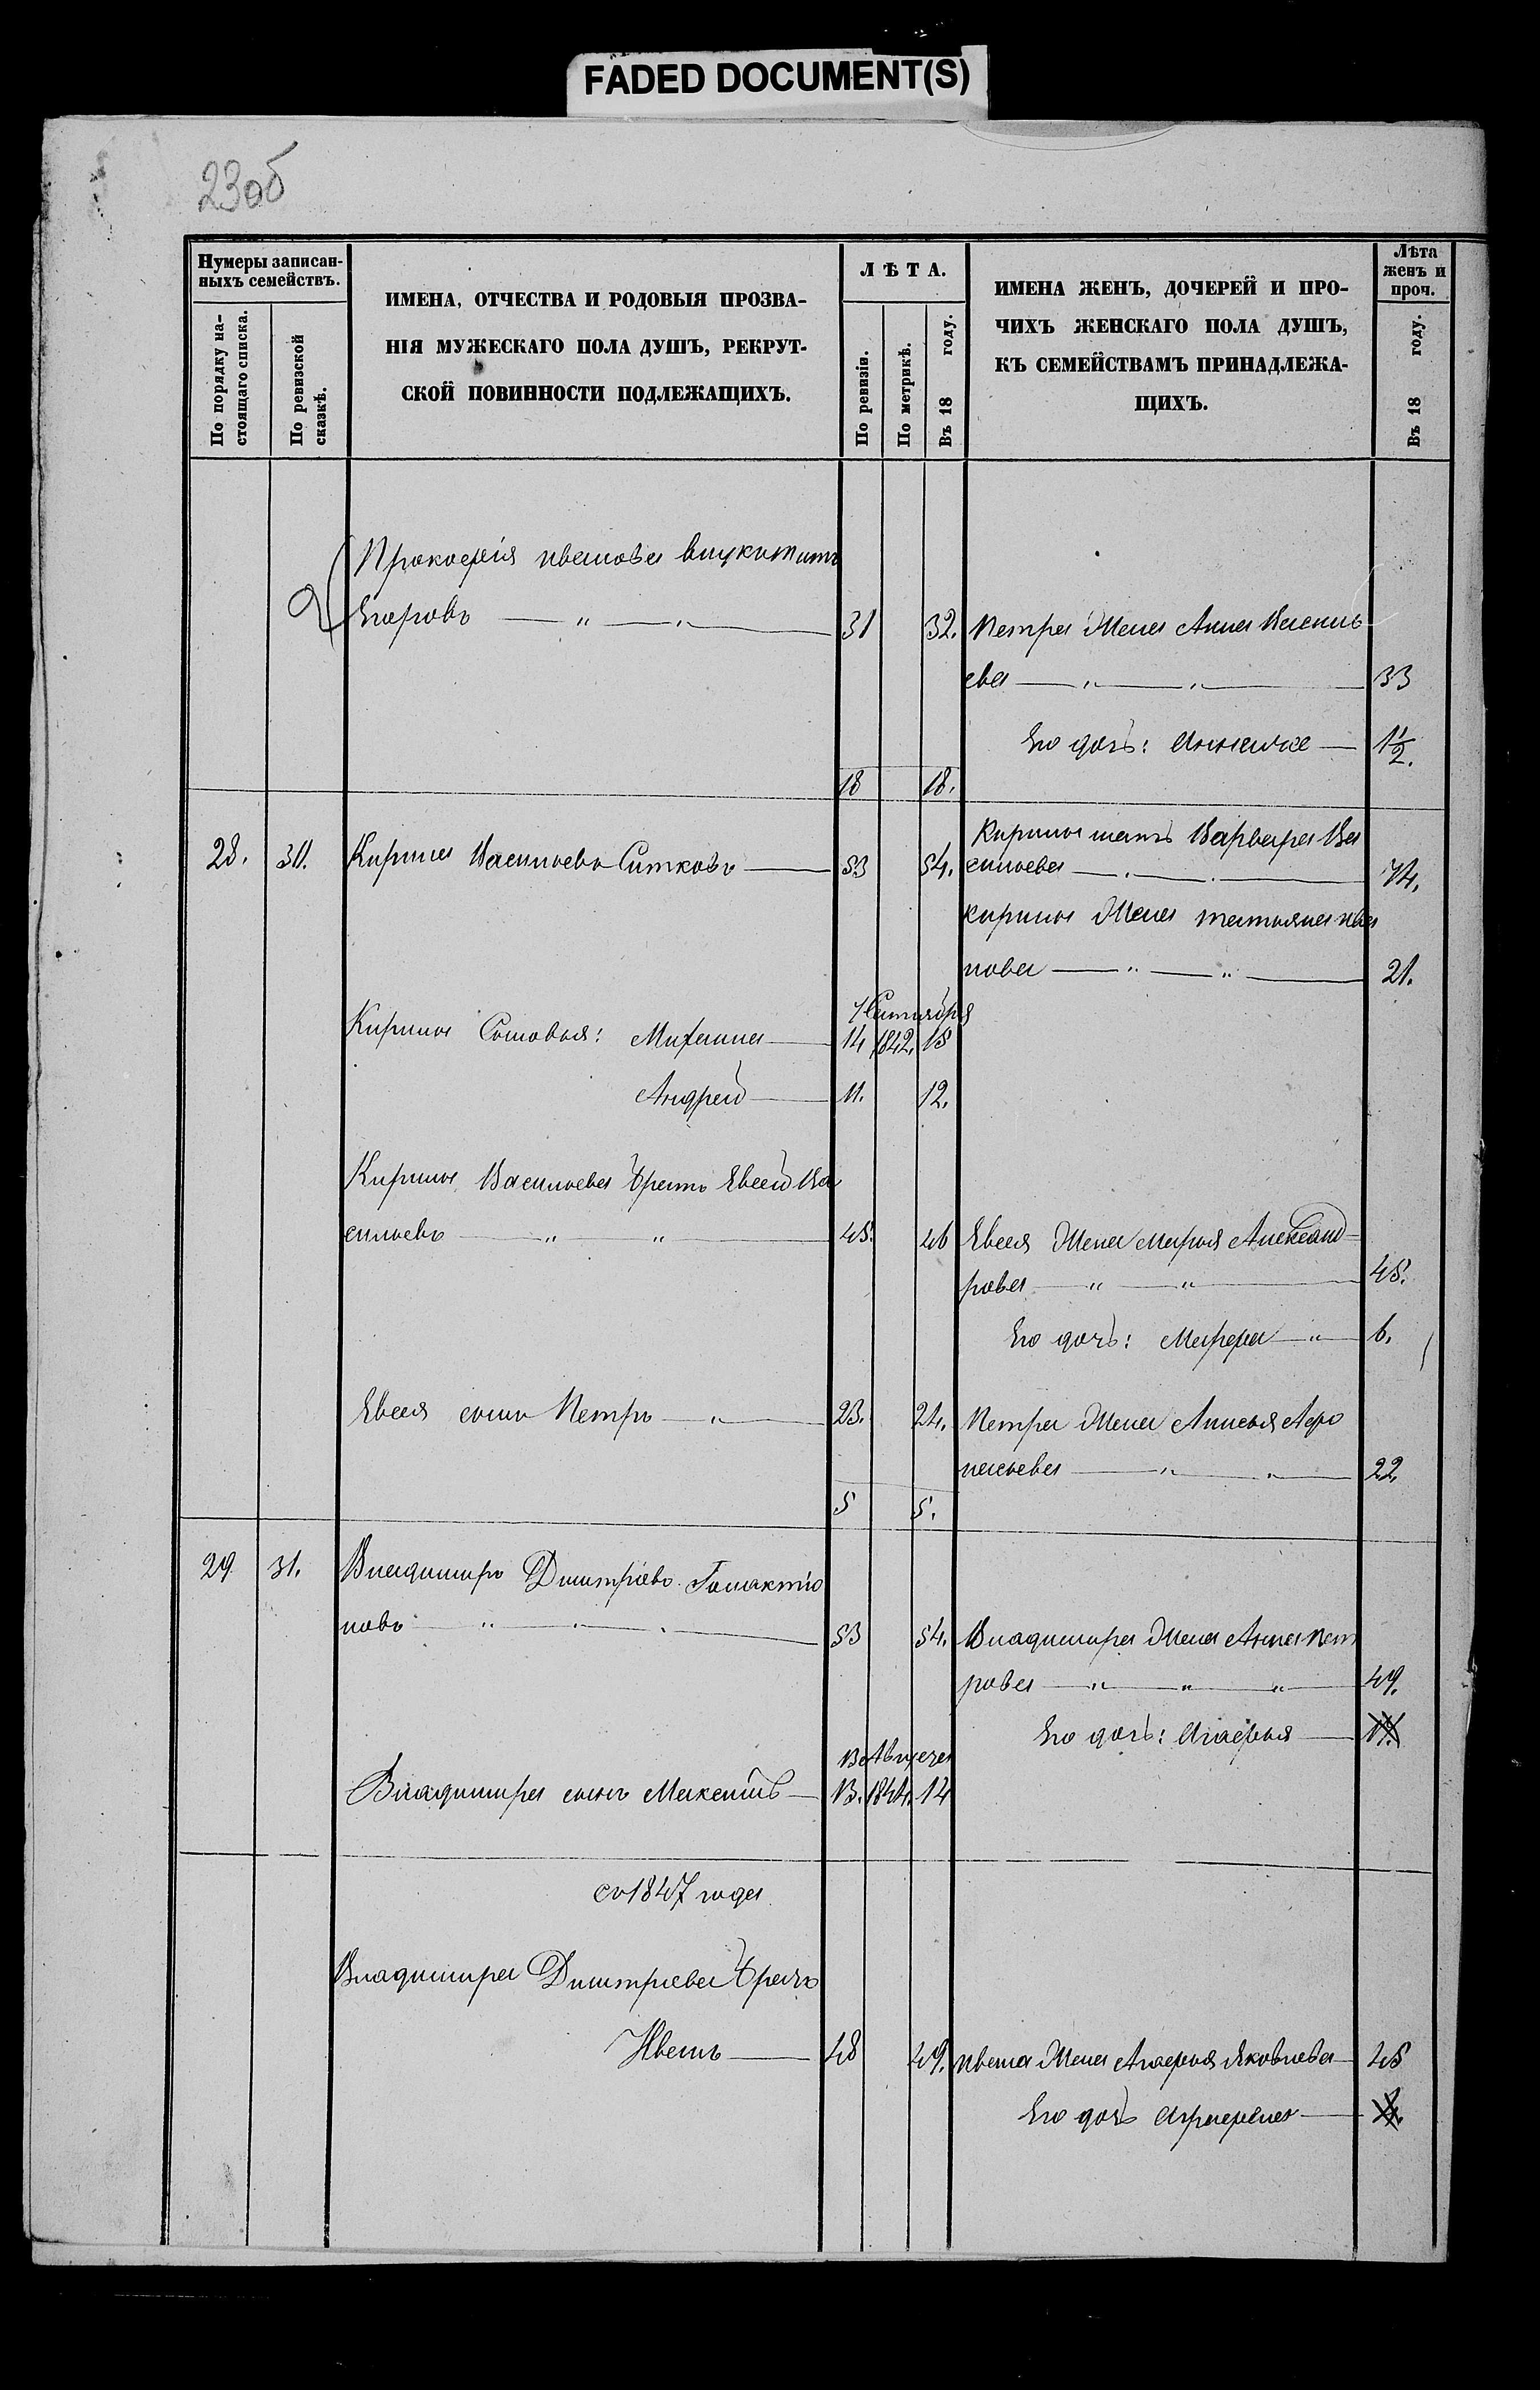 FADED DOCUMENT(S)
23об
Нумеры записан-
ныхъ семействъ.
По порядку на-
стоящаго списка.
По ревизской
сказкѣ.
ИМЕНА, ОТЧЕСТВА И РОДОВЫЯ ПРОЗВА-
НІЯ МУЖЕСКАГО ПОЛА ДУШЪ, РЕКРУТ-
СКОЙ ПОВИННОСТИ ПОДЛЕЖАЩИХЪ.
ЛѢТА.
По ревизіи.
По метрикѣ.
Въ 18 году.
ИМЕНА ЖЕНЪ, ДОЧЕРЕЙ И ПРО-
ЧИХЪ ЖЕНСКАГО ПОЛА ДУШЪ,
КЪ СЕМЕЙСТВАМЪ ПРИНАДЛЕЖА-
ЩИХЪ.
Лѣта
женъ и
проч.
Въ 18 году.
Прокофія иванова внукъ
Егоровъ 31 32. Петра Жена Анна Василь
ева 33
Его дочь: 1½.
18 18.
Кирилы мать Варвара Ва
28. 30. Кирила Васильевъ Ситковъ 53 54. сильева 74.
Кирилы Жена татьяна ива
нова 21.
7 Сентября
Кирилы Сыновья: Михаила 14 1842. 15
Андрей 11. 12.
Кирилы Васильева братъ Евсей Ва
сильевъ 45. 46 Евсея Жена марья Александ
рова 45.
Его дочь: Марфа 6.
Евсея сынъ Петръ 23. 24. Петра Жена Анисья Афо
насьева 22.
5 5.
29 31. Владимиръ Димитріевъ Галактіо
новъ 53 54. Владимира Жена Анна Пет
рова 49.
Его дочь: Агафья
Въ Августе
Владимира сынъ Максимъ 13. 1844. 14
съ 1847 года
Владимира Димитріева братъ
Иванъ 48 49. ивана Жена Агафья Яковлева 45
Его дочь Аграфена